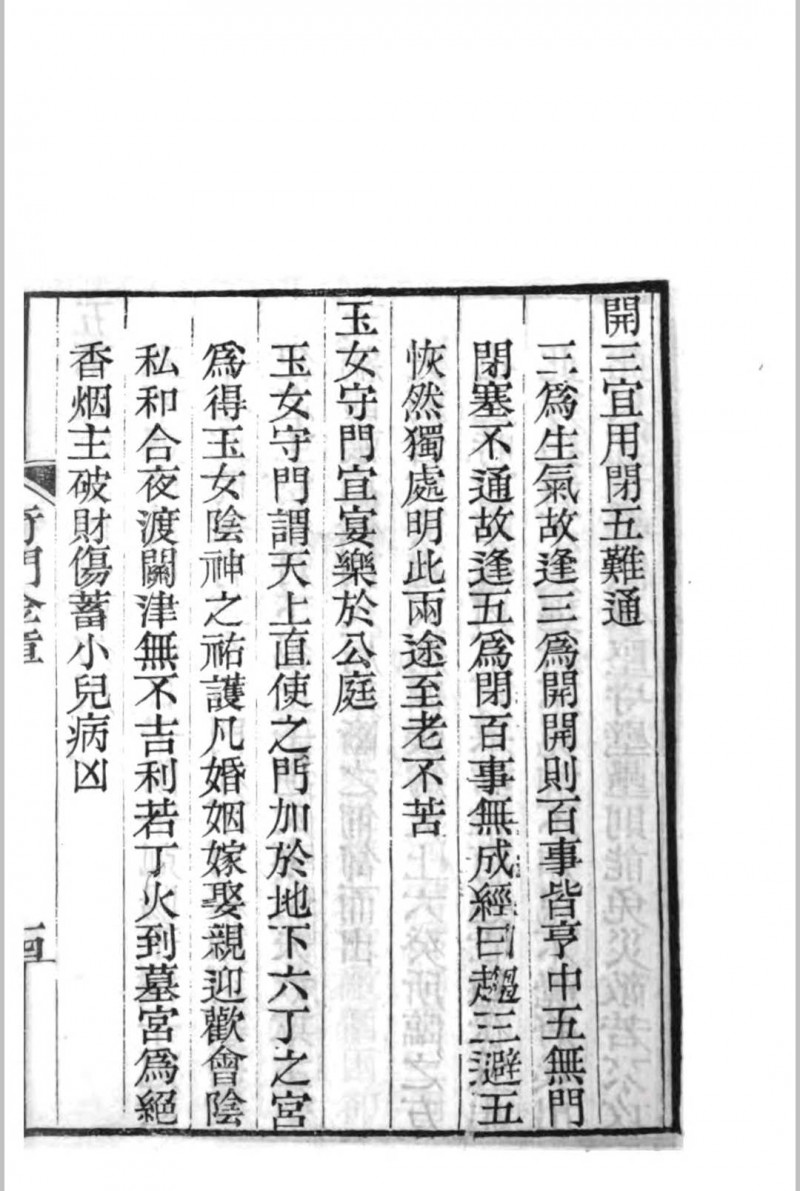 開三宜用閉五難通
三爲生氣故逢三爲開開則百事皆亨中五無門
閉塞不通故逢五爲閉百事無成經曰趨三避五
恢然獨處明此兩途至老不苦
玉女守門宜宴樂於公庭
玉女守門謂天上直使之門加於地下六丁之宮
爲得玉女陰神之祐護凡婚姻嫁娶親迎歡會陰
私和合夜渡關津無不吉利若丁火到墓宮爲絕
香烟主破財傷蓄小兒病凶